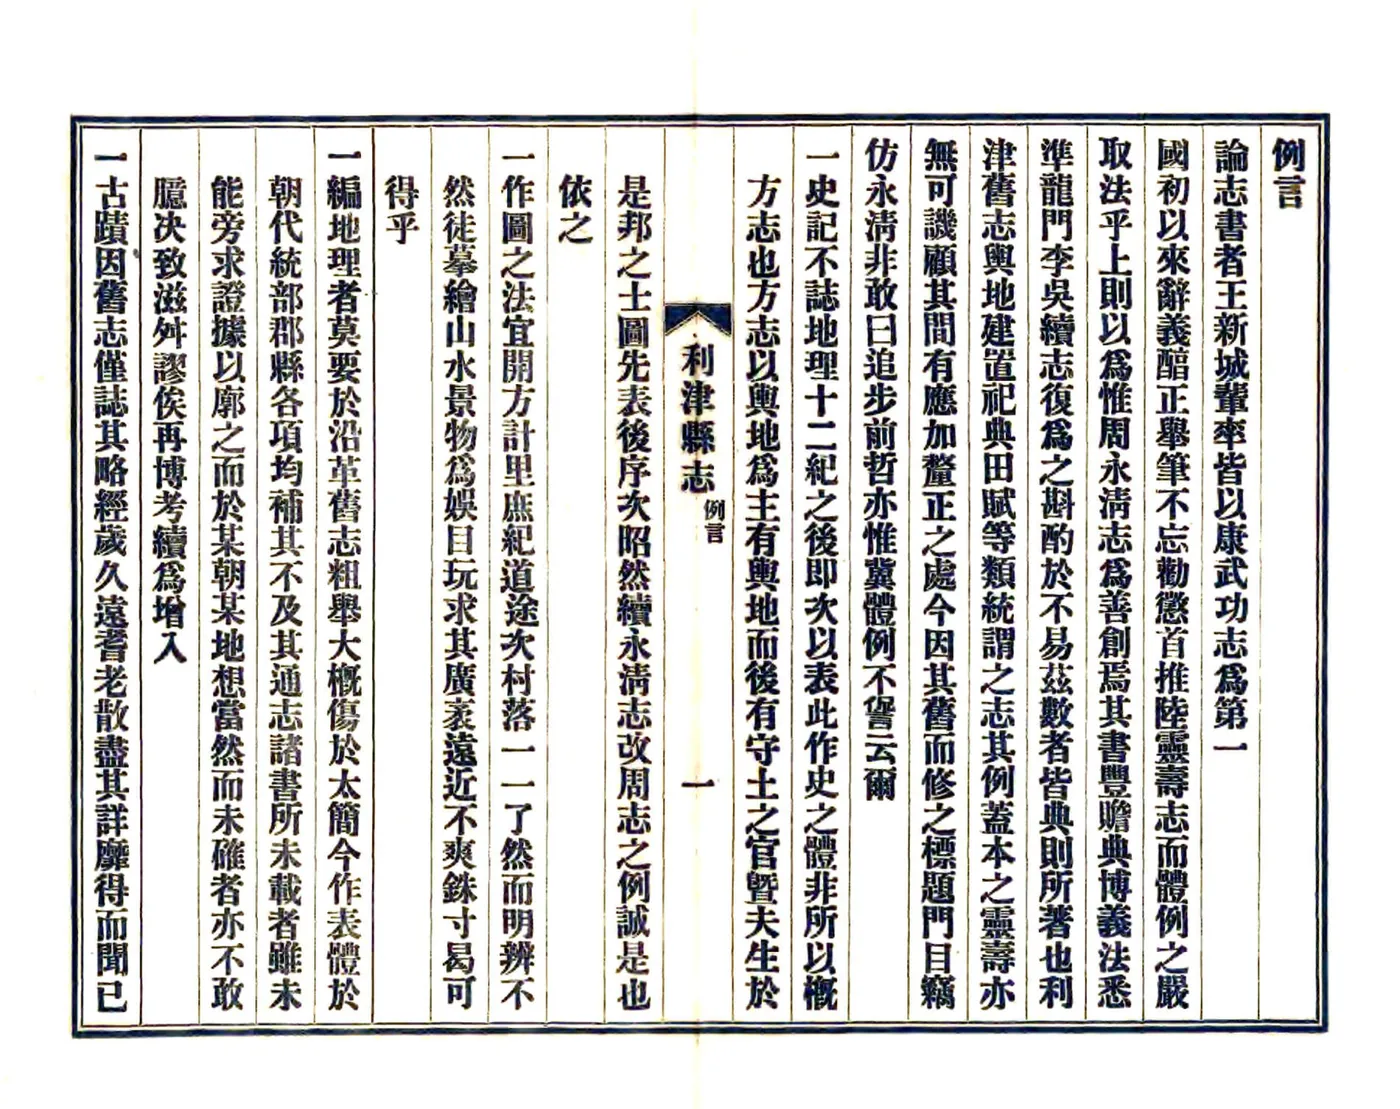 例言
論志書者王新城輩率皆以康武功志爲第一
國初以來辭義醇正舉筆不忘勸懲首推陸靈壽志而體例之嚴
取法乎上則以爲惟周永淸志爲善創焉其書豐贍典博義法悉
準龍門李吳續志復爲之斟酌於不易茲數者皆典則所著也利
津舊志輿地建置祀典田賦等類統謂之志其例蓋本之靈壽亦
無可譏顧其間有應加釐正之處今因其舊而修之標題門目竊
仿永淸非敢曰追步前哲亦惟冀體例不諐云爾
一史記不誌地理十二紀之後即次以表此作史之體非所以槪
方志也方志以輿地爲主有輿地而後有守土之官曁夫生於
利津縣志 例言 一
是邦之士圖先表後序次昭然續永淸志改周志之例誠是也
依之
一作圖之法宜開方計里庶紀道途次村落一一了然而明辨不
然徒摹繪山水景物爲娛目玩求其廣袤遠近不爽銖寸曷可
得乎
一編地理者莫要於沿革舊志粗舉大槪傷於太簡今作表體於
朝代統部郡縣各項均補其不及其通志諸書所未載者雖未
能旁求證據以廓之而於某朝某地想當然而未確者亦不敢
臆决致滋舛謬俟再博考續爲增入
一古蹟因舊志僅誌其略經歲久遠耆老散盡其詳靡得而聞已